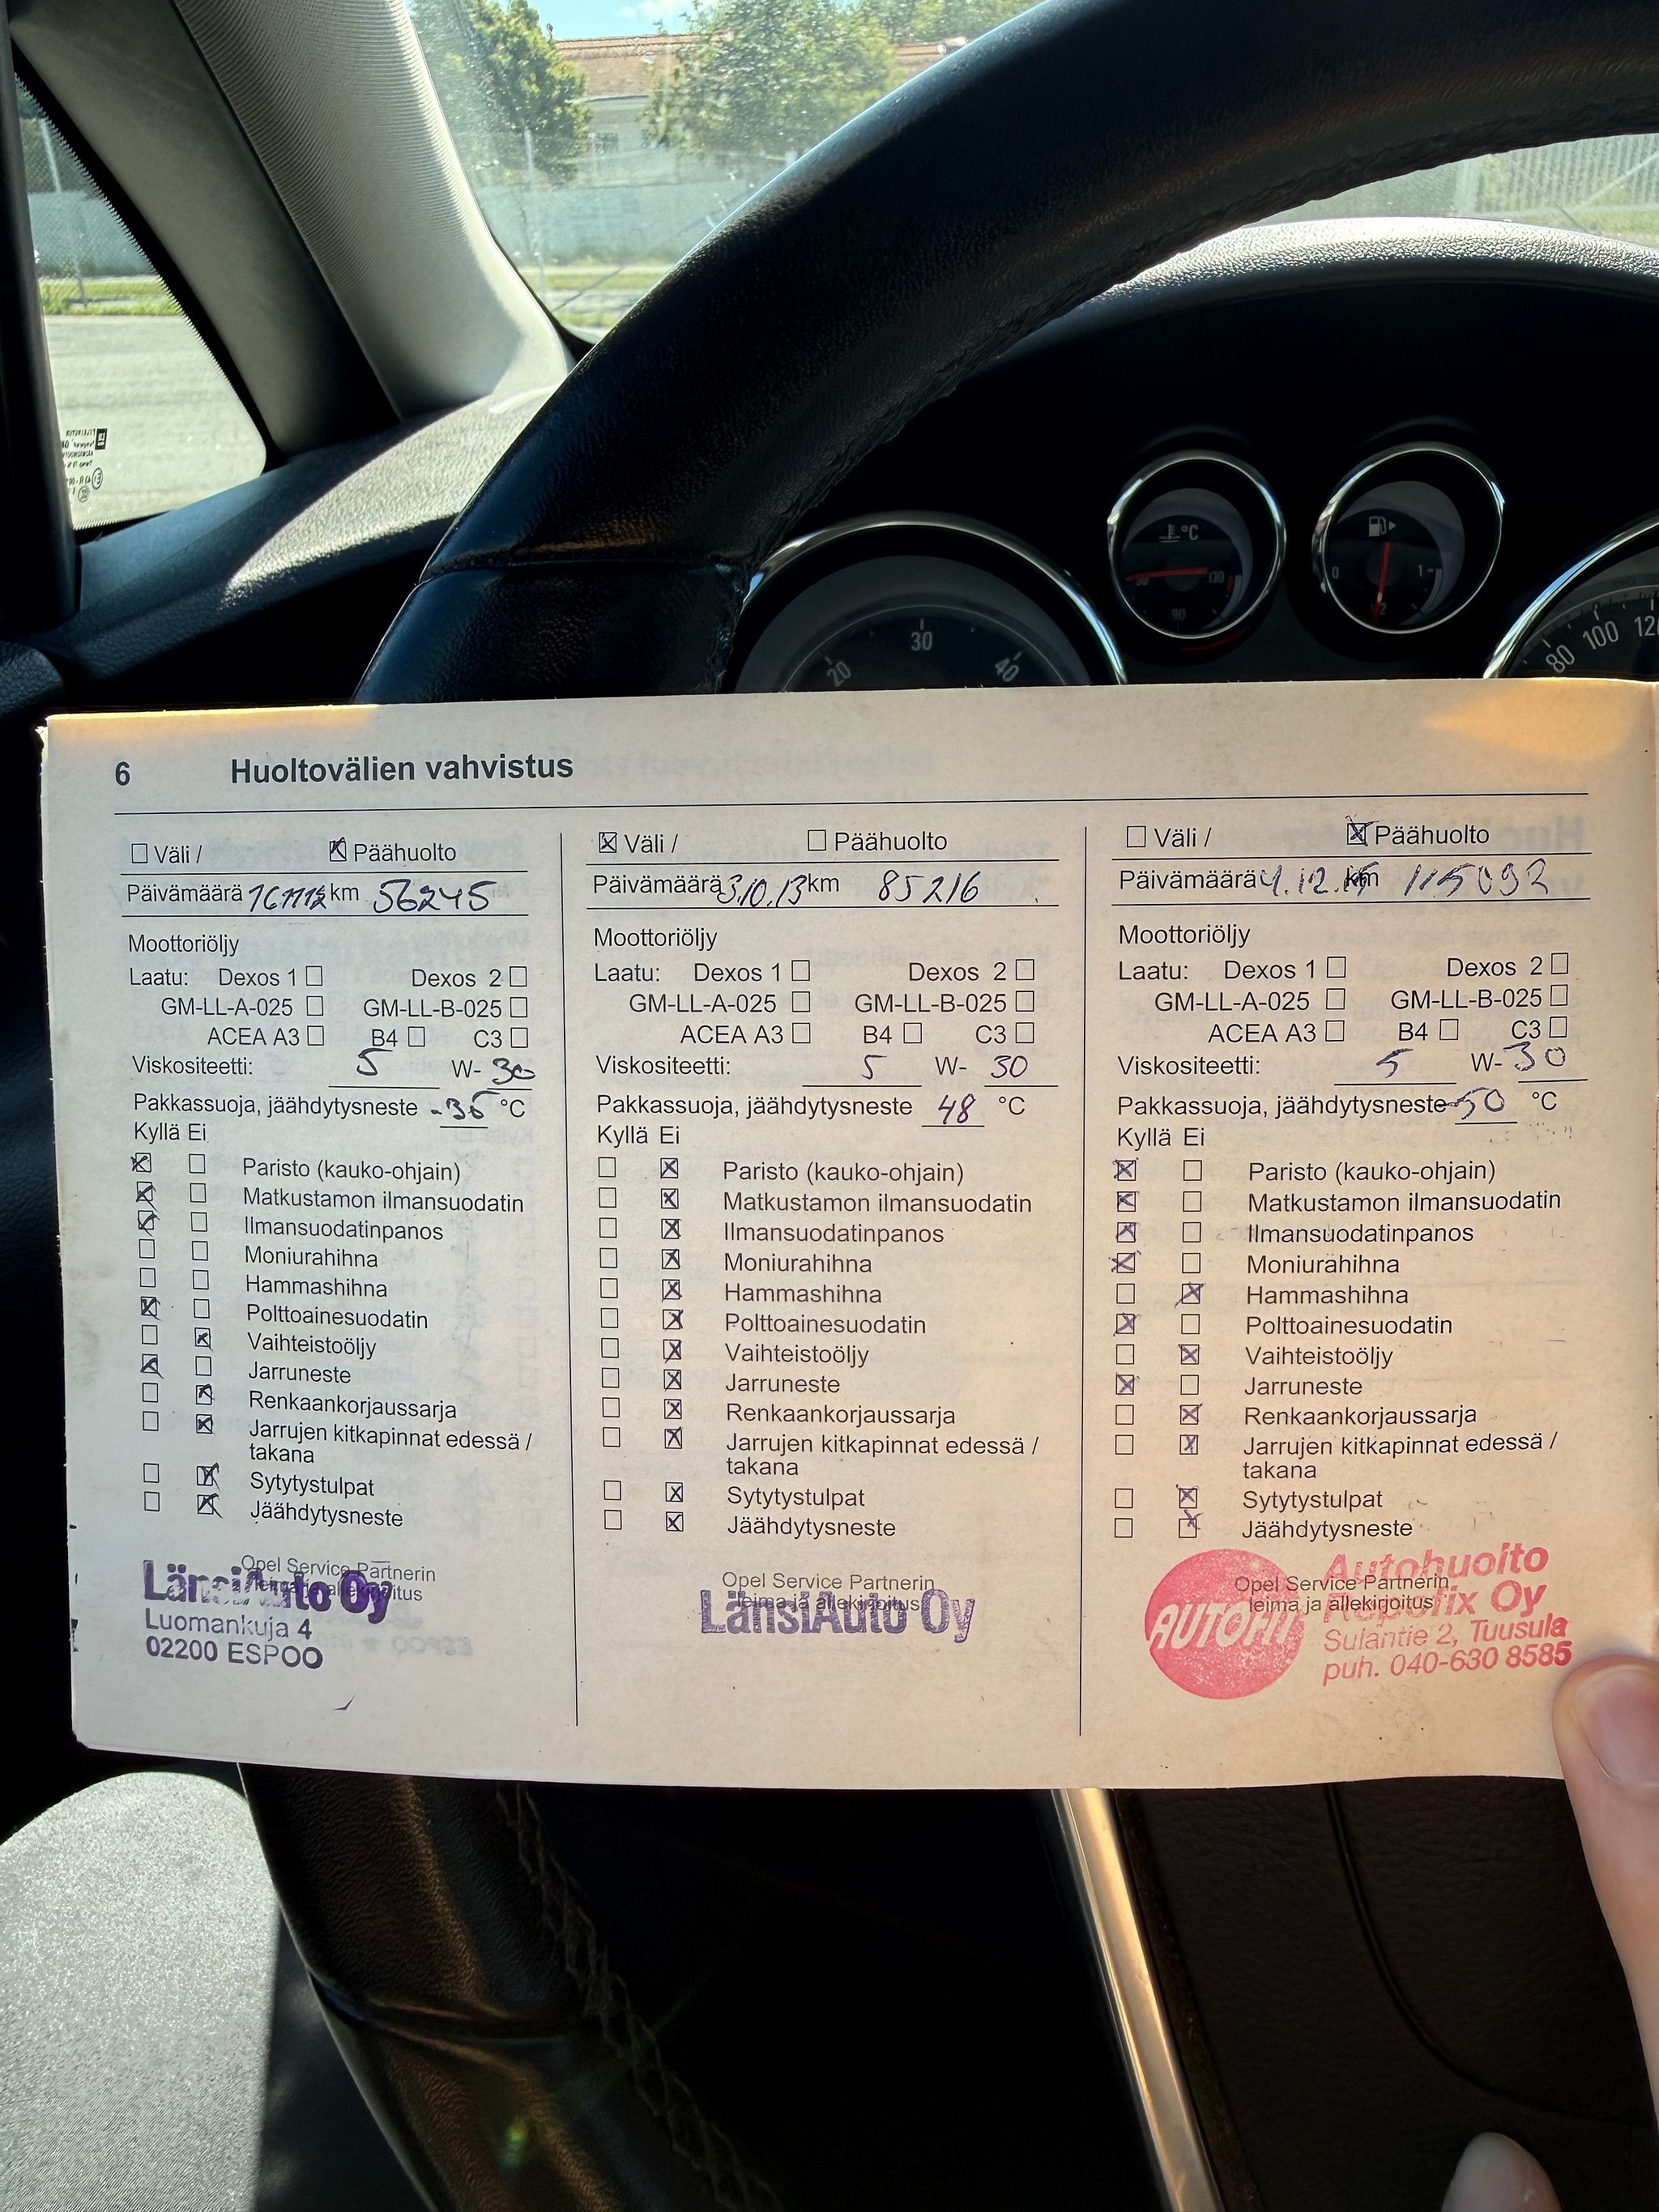 °C
90
130
0
1/2
1
20
30
40
80
100
6 Huoltovälien vahvistus
Väli / Päähuolto
Päivämäärä km 56245
Moottoriöljy
Laatu: Dexos 1 Dexos 2
GM-LL-A-025 GM-LL-B-025
ACEA A3 B4 C3
Viskositeetti: 5 W- 30
Pakkassuoja, jäähdytysneste -36 °C
Kyllä Ei
Paristo (kauko-ohjain)
Matkustamon ilmansuodatin
Ilmansuodatinpanos
Moniurahihna
Hammashihna
Polttoainesuodatin
Vaihteistoöljy
Jarruneste
Renkaankorjaussarja
Jarrujen kitkapinnat edessä /
takana
Sytytystulpat
Jäähdytysneste
Opel Service Partnerin
leima ja allekirjoitus
LänsiAuto Oy
Luomankuja 4
02200 ESPOO
Väli / Päähuolto
Päivämäärä 3.10.13 km 85216
Moottoriöljy
Laatu: Dexos 1 Dexos 2
GM-LL-A-025 GM-LL-B-025
ACEA A3 B4 C3
Viskositeetti: 5 W- 30
Pakkassuoja, jäähdytysneste 48 °C
Kyllä Ei
Paristo (kauko-ohjain)
Matkustamon ilmansuodatin
Ilmansuodatinpanos
Moniurahihna
Hammashihna
Polttoainesuodatin
Vaihteistoöljy
Jarruneste
Renkaankorjaussarja
Jarrujen kitkapinnat edessä /
takana
Sytytystulpat
Jäähdytysneste
Opel Service Partnerin
leima ja allekirjoitus
LänsiAuto Oy
Väli / Päähuolto
Päivämäärä km 115092
Moottoriöljy
Laatu: Dexos 1 Dexos 2
GM-LL-A-025 GM-LL-B-025
ACEA A3 B4 C3
Viskositeetti: 5 W- 30
Pakkassuoja, jäähdytysneste -50 °C
Kyllä Ei
Paristo (kauko-ohjain)
Matkustamon ilmansuodatin
Ilmansuodatinpanos
Moniurahihna
Hammashihna
Polttoainesuodatin
Vaihteistoöljy
Jarruneste
Renkaankorjaussarja
Jarrujen kitkapinnat edessä /
takana
Sytytystulpat
Jäähdytysneste
Opel Service Partnerin
leima ja allekirjoitus
AUTOFIT
Autohuolto
Repofix Oy
Sulantie 2, Tuusula
puh. 040-630 8585